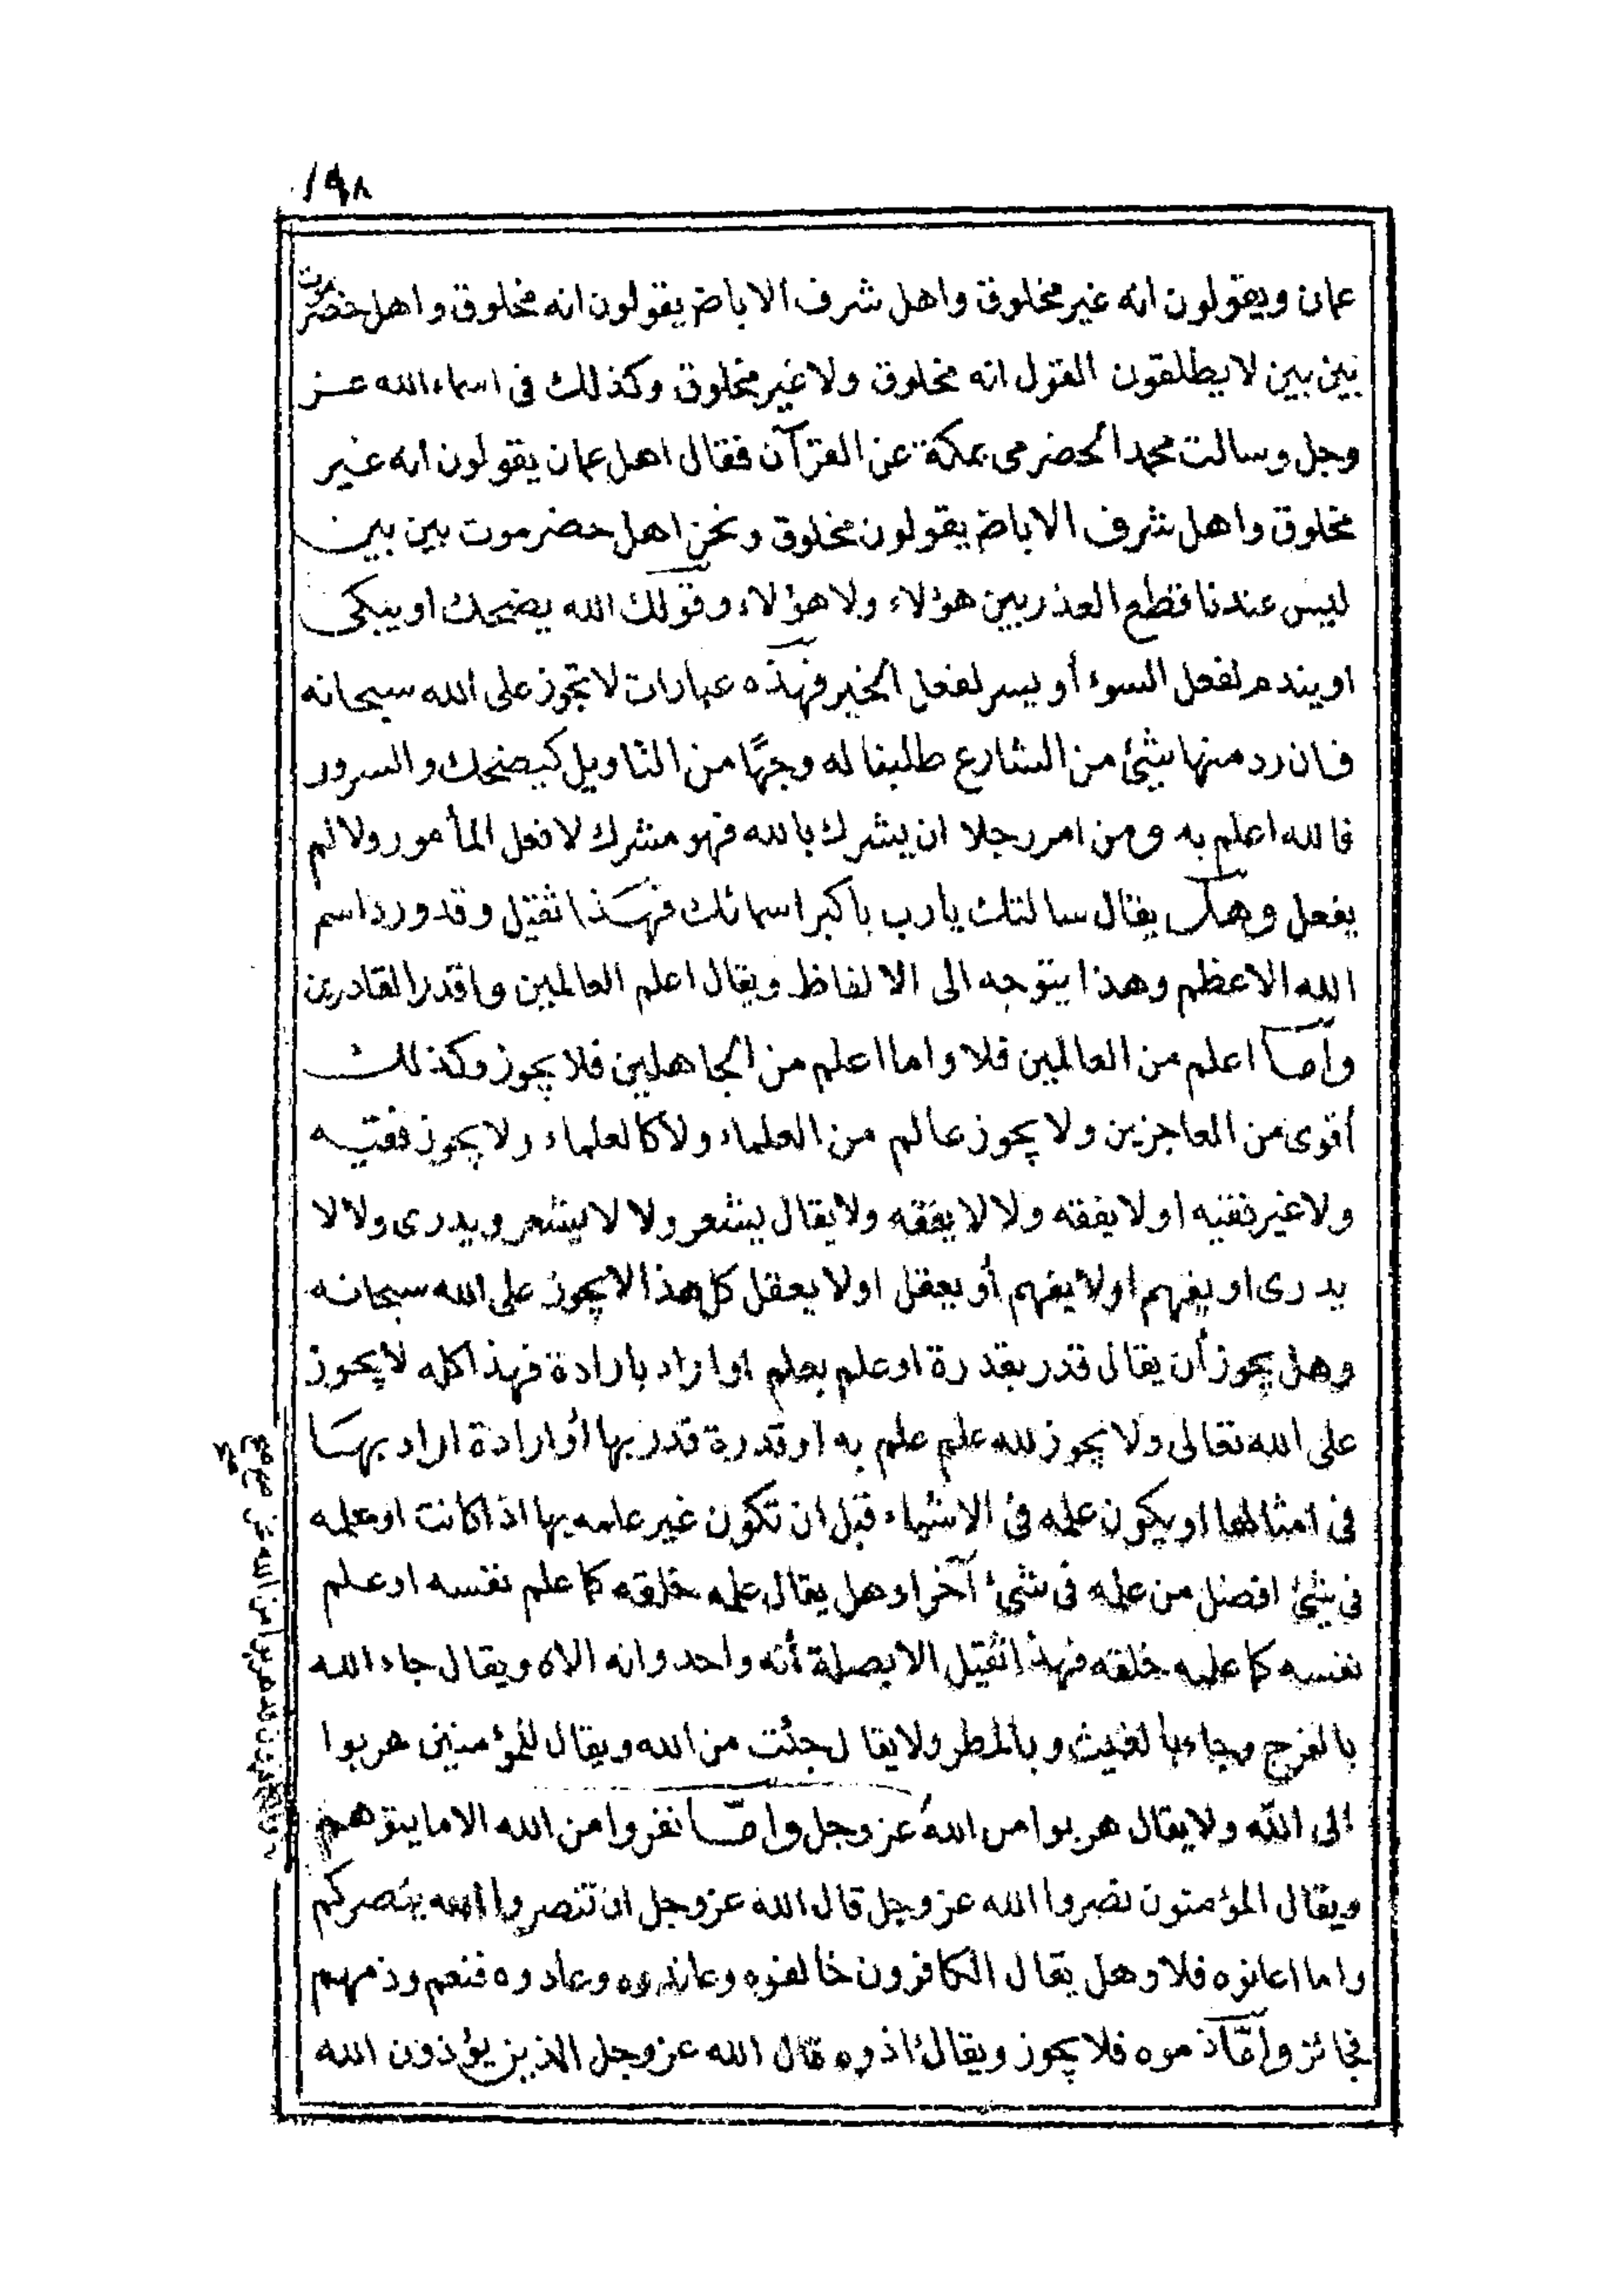 ١٩٨
عمان ويقولون انه غير مخلوق واهل شرف الاباض يقولون انه مخلوق واهل حضرموت
بين بين لا يطلقون القول انه مخلوق ولا غير مخلوق وكذلك فى اسماء الله عز
وجل وسالت محمد الحضرمى بمكة عن القرآن فقال اهل عمان يقولون انه غير
مخلوق واهل شرف الاباض يقولون مخلوق ونحن اهل حضرموت بين بين
ليس عندنا قطع العذر بين هؤلاء ولا هؤلاء وقولك الله يضحك او يبكى
او يندم لفعل السوء أو يسر لفعل الخير فهذه عبارات لا تجوز على الله سبحانه
فان رد منها شئ من الشارع طلبنا له وجهًا من التاويل كيضحك والسرور
فالله اعلم به ومن امر رجلا ان يشرك بالله فهو مشرك لا فعل المأمور ولا لم
يفعل وهل يقال سالتك يارب باكبر اسمائك فهذا ثقيل وقد ورد اسم
الله الاعظم وهذا يتوجه الى الالفاظ ويقال اعلم العالمين واقدر القادرين
وأما اعلم من العالمين فلا واما اعلم من الجاهلين فلا يجوز وكذلك
أقوى من العاجزين ولا يجوز عالم من العلماء ولا كالعلماء ولا يجوز فقيه
ولا غير فقيه او لا يفقه ولا لا يفقه ولا يقال يشعر ولا لا يشعر ويدرى ولا لا
يدرى او يفهم او لا يفهم أو يعقل او لا يعقل كل هذا لا يجوز على الله سبحانه
وهل يجوز أن يقال قدر بقدرة او علم بعلم او اراد بارادة فهذا كله لا يجوز
على الله تعالى ولا يجوز لله علم علم به او قدرة قدر بها أو ارادة اراد بها
فى امثالها او يكون علمه فى الاشياء قبل ان تكون غير علمه بها اذا كانت او علمه
فى شئ افضل من علمه فى شئ آخر او هل يقال علمه خلقه كما علم نفسه او علم
نفسه كما علمه خلقه فهذا ثقيل الا بصلة أنه واحد وانه الاه ويقال جاء الله
بالفرج وجاء بالغيث وبالمطر ولا يقال جئت من الله ويقال للمؤمنين هربوا
الى الله ولا يقال هربوا من الله عز وجل واما نفروا من الله الا ما يتوهم
ويقال المؤمنون نصروا الله عز وجل قال الله عز وجل ان تنصروا الله ينصركم
واما اعانوه فلا وهل يقال الكافرون خالفوه وعاندوه وعادوه فنعم وذمهم
فجائز وأمّا ذموه فلا يجوز ويقال اذوه قال الله عز وجل الذين يؤذون الله